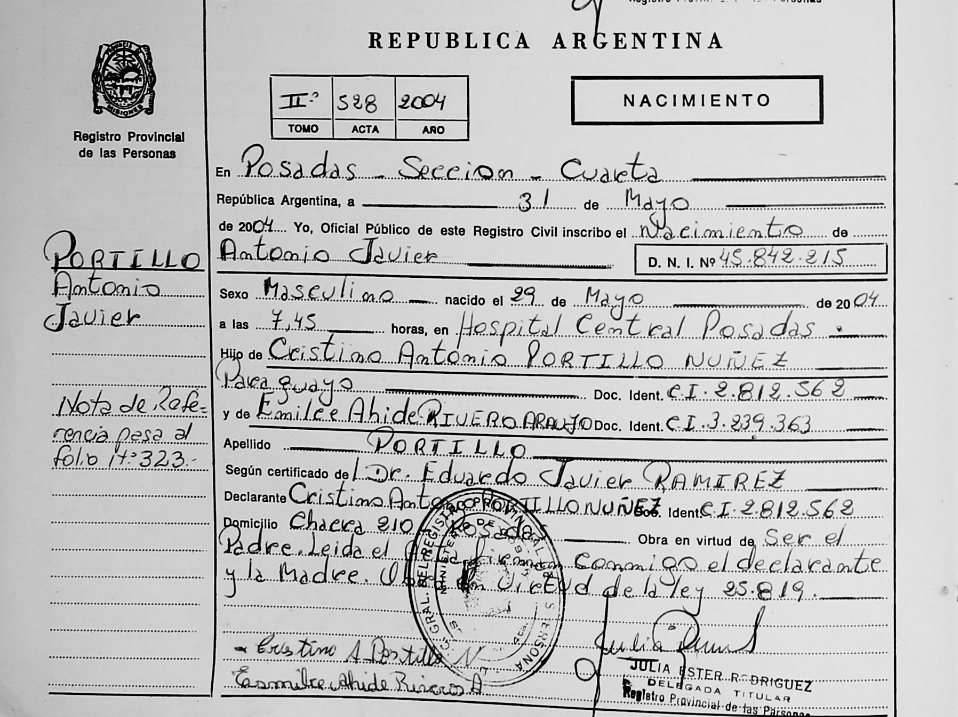 Registro Provincial de las Personas
REPUBLICA ARGENTINA
PROVINCIA DE
MISIONES
Registro Provincial
de las Personas
IIº 528 2004
TOMO ACTA AÑO
NACIMIENTO
En Posadas - Seccion - Cuarta
República Argentina, a 31 de Mayo
de 2004 Yo, Oficial Público de este Registro Civil inscribo el Nacimiento de
Antonio Javier D. N. I. Nº 45.842.215
PORTILLO
Antonio
Javier
Nota de Refe-
rencia pasa al
folio Nº 323.-
Sexo Masculino nacido el 29 de Mayo de 2004
a las 7,45 horas, en Hospital Central Posadas.
Hijo de Cristino Antonio PORTILLO NUÑEZ
Paraguayo Doc. Ident. C.I. 2.812.562
y de Emilce Ahide RIVERO ARAUJO Doc. Ident. C.I. 3.239.363
Apellido PORTILLO
Según certificado del Dr. Eduardo Javier RAMIREZ
Declarante Cristino Antonio PORTILLO NUÑEZ Doc. Ident. C.I. 2.812.562
Domicilio Chacra 210 - Posadas Obra en virtud de Ser el
Padre. Leida el firman Conmigo el declarante
y la Madre. en Virtud de la ley 25.819.
Cristino A Portillo N
Ahide Rivero A
JULIA ESTER RODRIGUEZ
DELEGADA TITULAR
Registro Provincial de las Personas